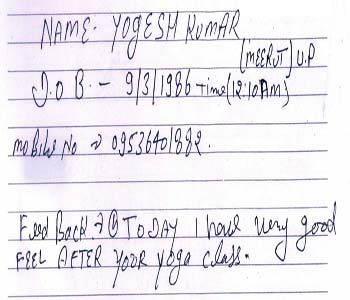 NAME- YOGESH KUMAR
[MEERUT] U.P
D.O B. - 9/3/1986 time (12:10AM)
mobile No → 09536401882.
Feed Back → ① TODAY I have very good
FEEL AFTER YOUR yoga class.